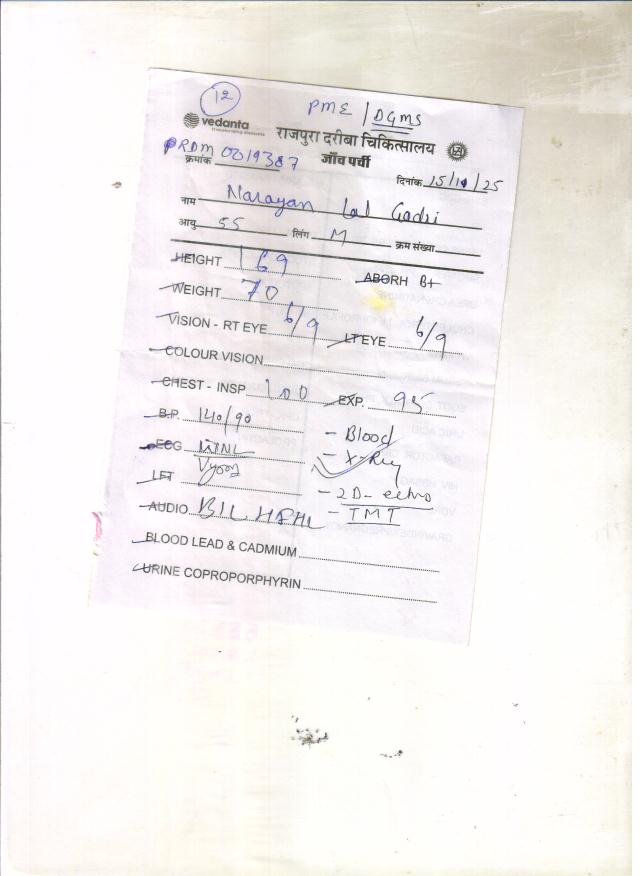 12
PME / DGMS
vedanta
transforming elements
राजपुरा दरीबा चिकित्सालय
जाँच पर्ची
PRDM
क्रमांक 0019387
दिनांक 15/10/25
नाम Narayan Lal Gadri
आयु 55 लिंग M क्रम संख्या
HEIGHT 169 ABORH B+
WEIGHT 70
VISION - RT EYE 6/9 LT EYE 6/9
COLOUR VISION
CHEST - INSP 100 EXP. 95
B.P. 140/90 - Blood
ECG WNL - X-Ray
LFT
- 2D-echo
AUDIO BIL HFHL - TMT
BLOOD LEAD & CADMIUM
URINE COPROPORPHYRIN